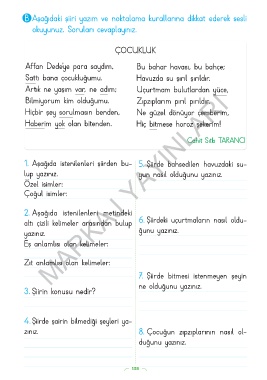 B Aşağıdaki şiiri yazım ve noktalama kurallarına dikkat ederek sesli
okuyunuz. Soruları cevaplayınız.
ÇOCUKLUK
Affan Dede'ye para saydım,
Sattı bana çocukluğumu.
Artık ne yaşım var, ne adım;
Bilmiyorum kim olduğumu.
Hiçbir şey sorulmasın benden,
Haberim yok olan bitenden.
Bu bahar havası, bu bahçe;
Havuzda su şırıl şırıldır.
Uçurtmam bulutlardan yüce,
Zıpzıplarım pırıl pırıldır.
Ne güzel dönüyor çemberim,
Hiç bitmese horoz şekerim!
Cahit Sıtkı TARANCI
1. Aşağıda istenilenleri şiirden bu-
lup yazınız.
Özel isimler:
Çoğul isimler:
2. Aşağıda istenilenleri metindeki
altı çizili kelimeler arasından bulup
yazınız.
Eş anlamlısı olan kelimeler:
Zıt anlamlısı olan kelimeler:
3. Şiirin konusu nedir?
4. Şiirde şairin bilmediği şeyleri ya-
zınız.
5. Şiirde bahsedilen havuzdaki su-
yun nasıl olduğunu yazınız.
6. Şiirdeki uçurtmaların nasıl oldu-
ğunu yazınız.
7. Şiirde bitmesi istenmeyen şeyin
ne olduğunu yazınız.
8. Çocuğun zıpzıplarının nasıl ol-
duğunu yazınız.
MARKAJ YAYINLARI